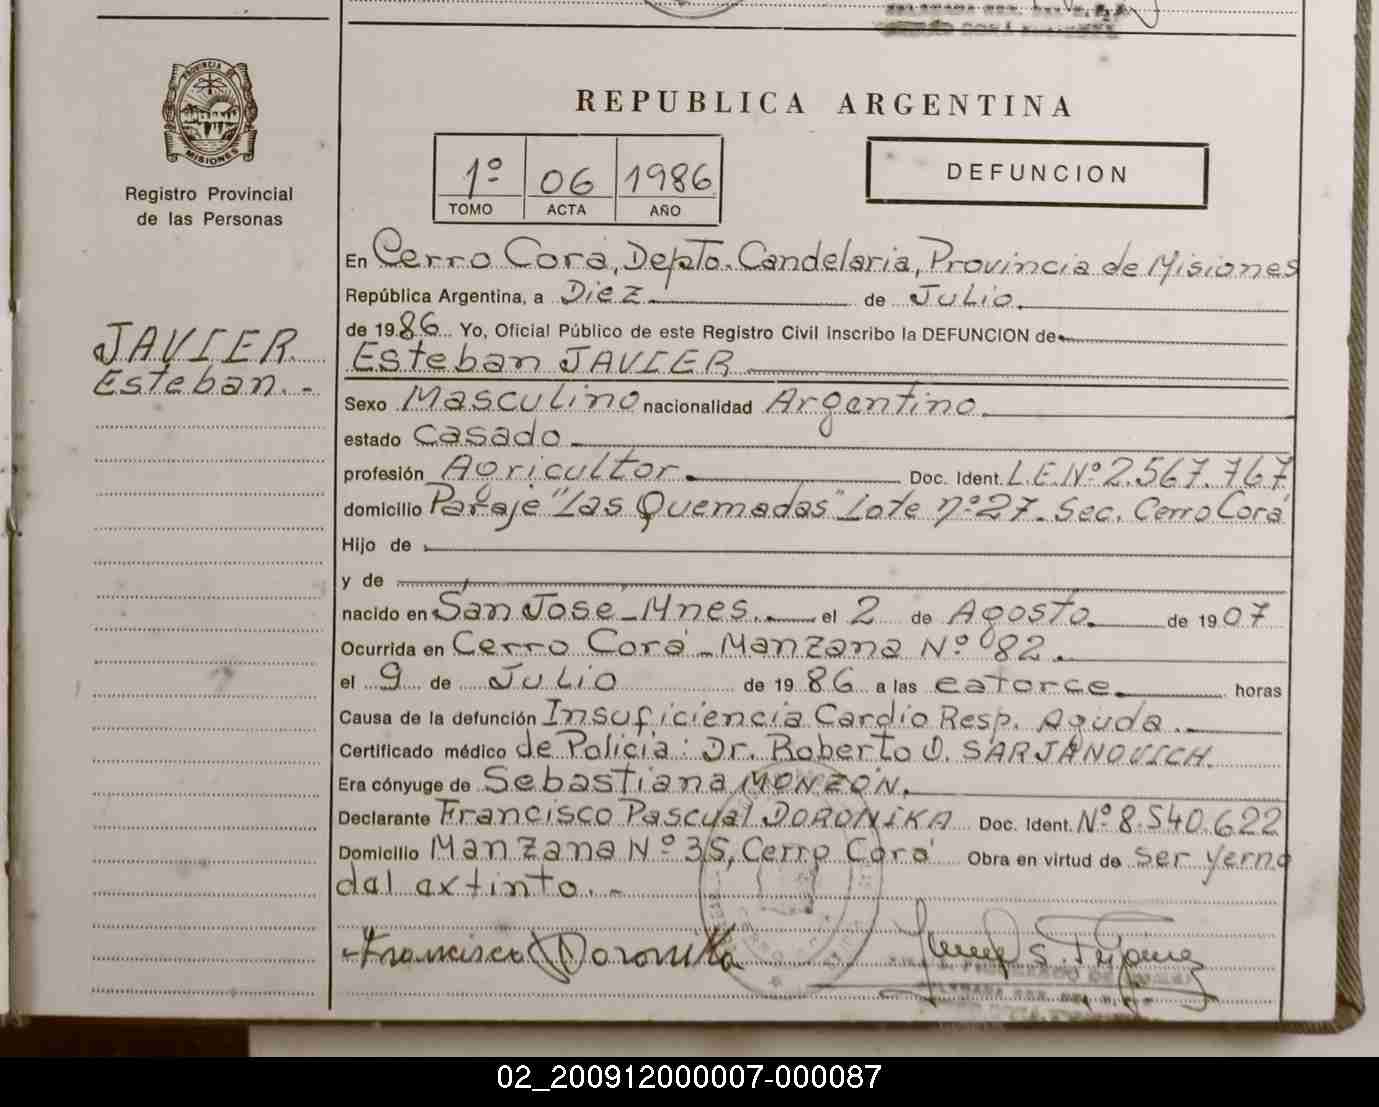 PROVINCIA DE
MISIONES
Registro Provincial
de las Personas
JAVIER
Esteban.-
REPUBLICA ARGENTINA
1º 06 1986
TOMO ACTA AÑO
DEFUNCION
En Cerro Corá, Depto. Candelaria, Provincia de Misiones
República Argentina, a Diez de Julio
de 1986 Yo, Oficial Público de este Registro Civil inscribo la DEFUNCION de
Esteban JAVIER
Sexo Masculino nacionalidad Argentino
estado Casado
profesión Agricultor Doc. Ident. L.E.Nº 2.567.767
domicilio Paraje "Las Quemadas" Lote nº27- Sec. Cerro Corá
Hijo de
y de
nacido en San José-Mnes. el 2 de Agosto de 1907
Ocurrida en Cerro Corá - Manzana Nº 82
el 9 de Julio de 1986 a las catorce horas
Causa de la defunción Insuficiencia Cardio Resp. Aguda.
Certificado médico de Policía: Dr. Roberto O. SARJANOVICH.
Era cónyuge de Sebastiana MONZÓN.
Declarante Francisco Pascual DORONIKA Doc. Ident. Nº 8.540.622
Domicilio Manzana Nº 35, Cerro Corá Obra en virtud de ser yerno
del extinto.-
Francisco Doronika
02_200912000007-000087